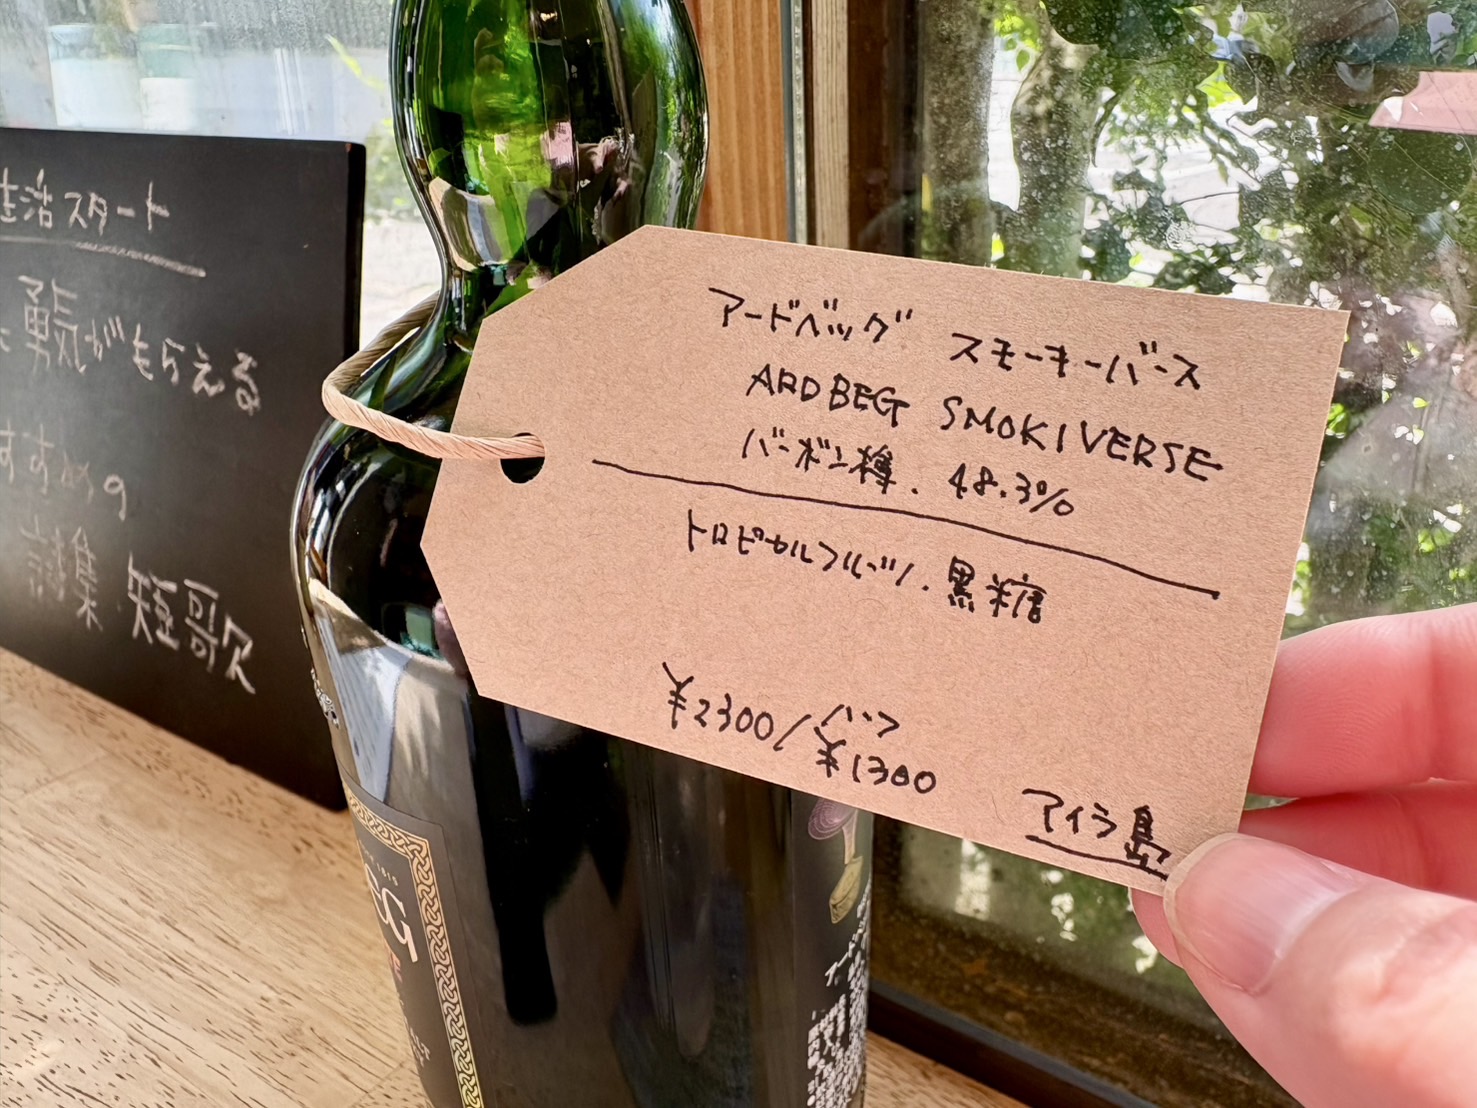 アードベッグ スモーキーバース
ARDBEG SMOKIVERSE
バーボン樽. 48.3%
トロピカルフルーツ. 黒糖
¥2300/ハーフ¥1300
アイラ島
生活スタート
勇気がもらえる
すすめの
詩集 短歌